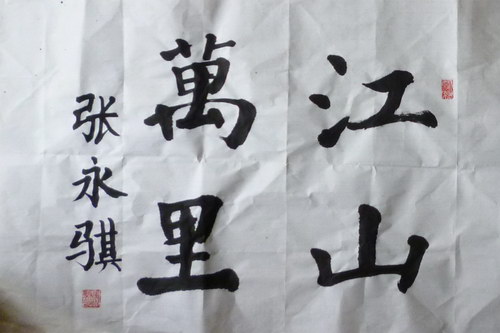 江山
萬里
张永骐